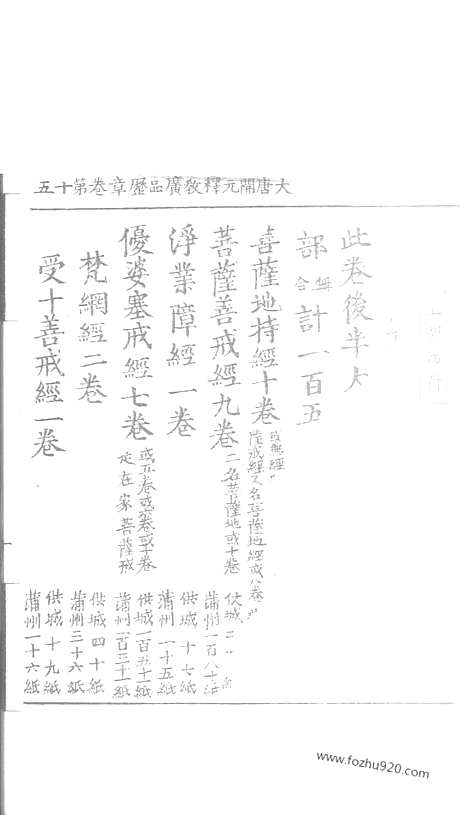 大唐開元釋教廣品歷章卷第十五
此卷後半大
部 合 計一百五
菩薩地持經十卷 或無經
薩戒經又名菩薩地經或八卷
供城
菩薩善戒經九卷 一名菩薩地或十卷
蒲州一百八十紙
淨業障經一卷
供城十七紙
蒲州一十五紙
優婆塞戒經七卷 或五卷或六卷或十卷
是在家菩薩戒
供城一百五十一紙
蒲州一百三十一紙
梵網經二卷
供城四十紙
蒲州三十六紙
受十善戒經一卷
供城十九紙
蒲州一十六紙
www.fozhu920.com